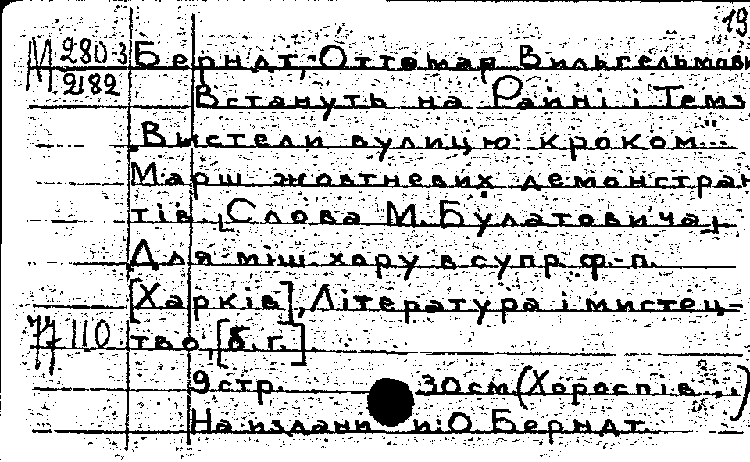 19
М 280-3
2182
Берндт, Оттомар Вильгельмови
Встануть на Райні і Темз
"Вистели вулицю кроком"...
Марш жовтневих демонстран
тів. [Слова М. Булатовича].
Для міш. хору в супр. ф-п.
[Харків], Література і мистец-
тво, [б. г.]
77 110
9 стр. 30 см (Хороспів...)
На издани и: О Берндт.